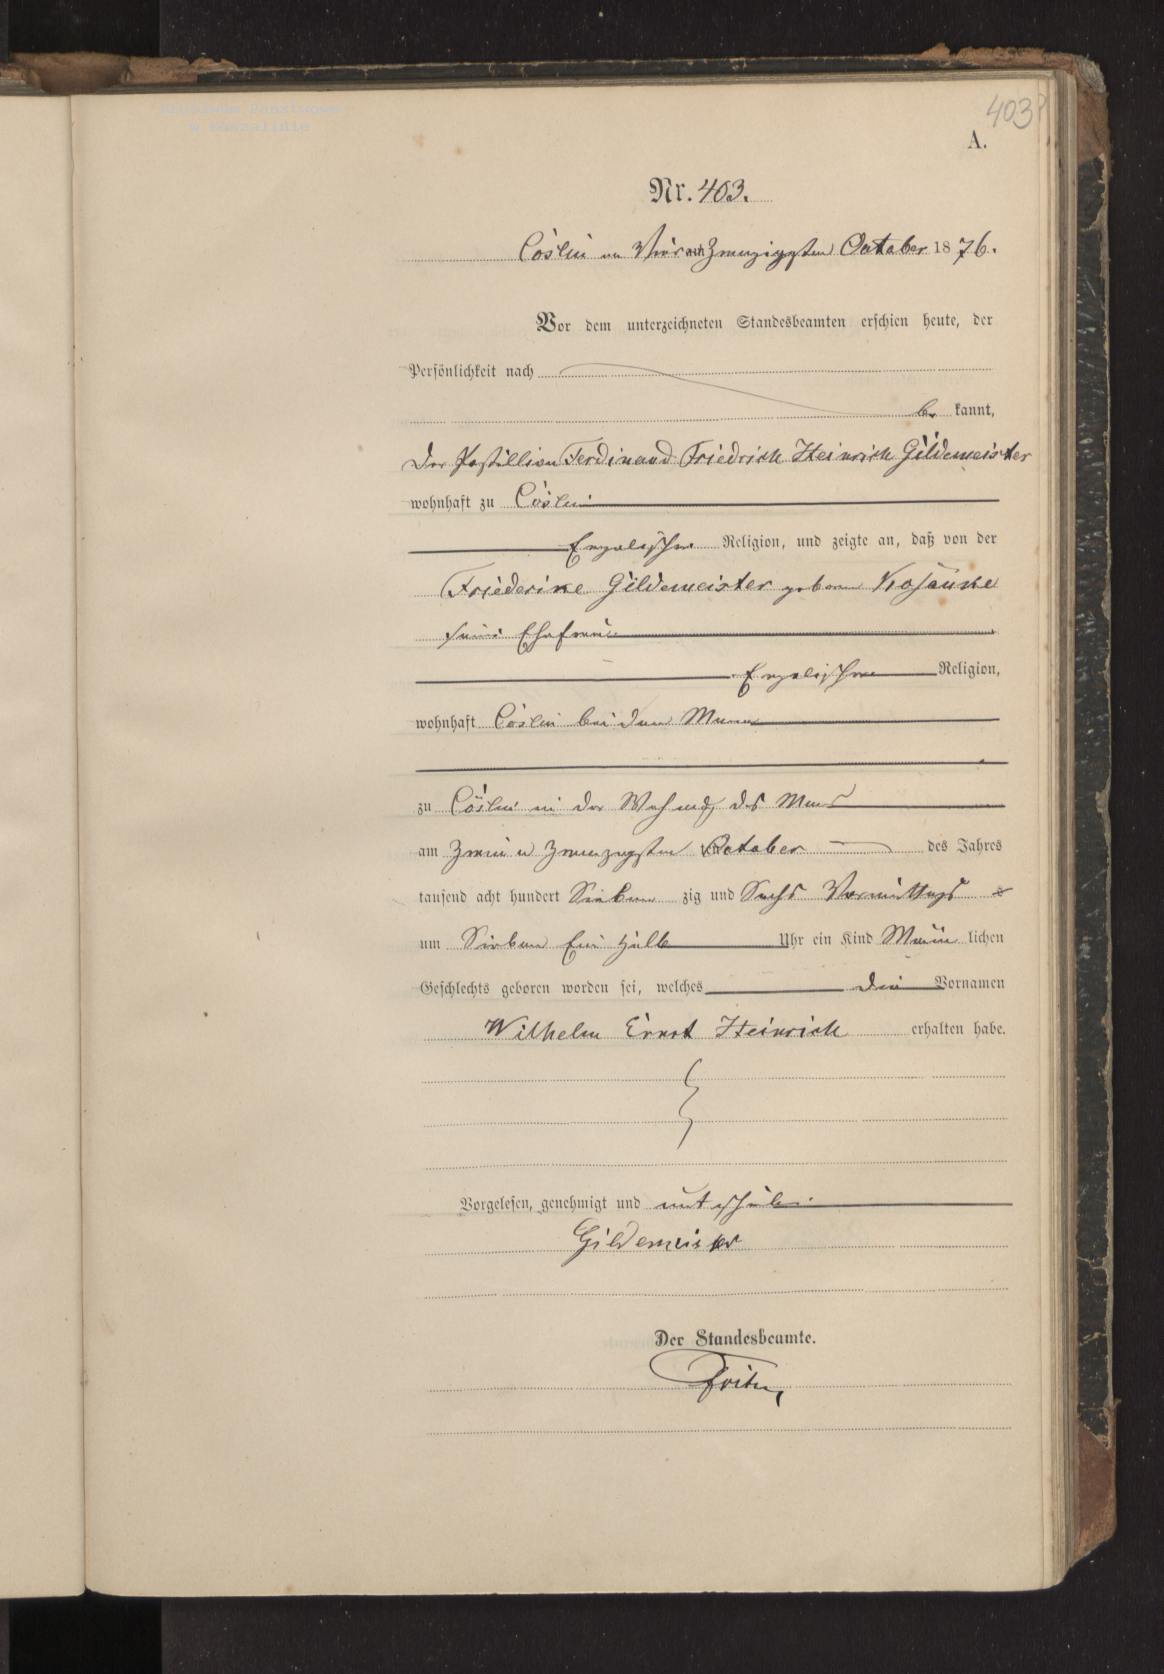 Archiwum Państwowe
w Koszalinie
403
A.
Nr. 403.
Cöslin am Vier und Zwanzigsten October 1876.
Vor dem unterzeichneten Standesbeamten erschien heute, der
Persönlichkeit nach
be kannt,
Der Postillion Ferdinand Friedrich Heinrich Gildemeister
wohnhaft zu Cöslin
Religion, und zeigte an, daß von der
Friederike Gildemeister geborene
seine Ehefrau
Religion,
wohnhaft Cöslin bei dem Manne
zu Cöslin in der Wohnung des Manns
am Zwei u Zwanzigsten October des Jahres
tausend acht hundert Sieben zig und Sechs Vormittags
um Sieben Ein halb Uhr ein Kind Männ lichen
Geschlechts geboren worden sei, welches die Vornamen
Wilhelm Ernst Heinrich erhalten habe.
Vorgelesen, genehmigt und
Gildemeister
Der Standesbeamte.